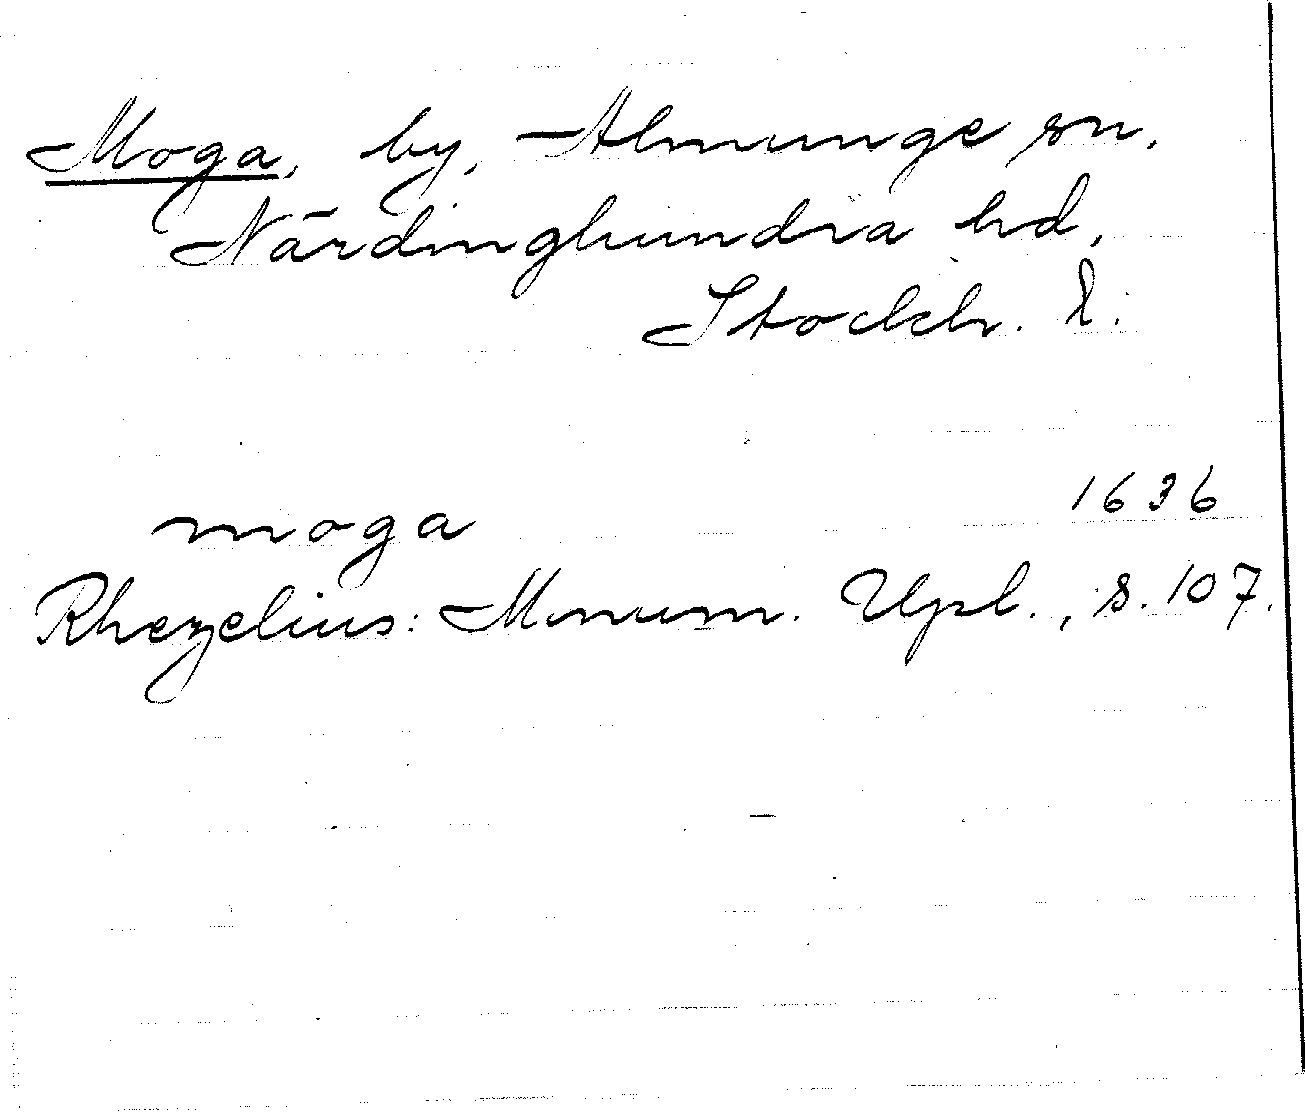 Moga, by, Almunge sn,
Närdinghundra hd,
Stockh. l.
moga 1636
Rhezelius: Monum. Upl., s. 107.